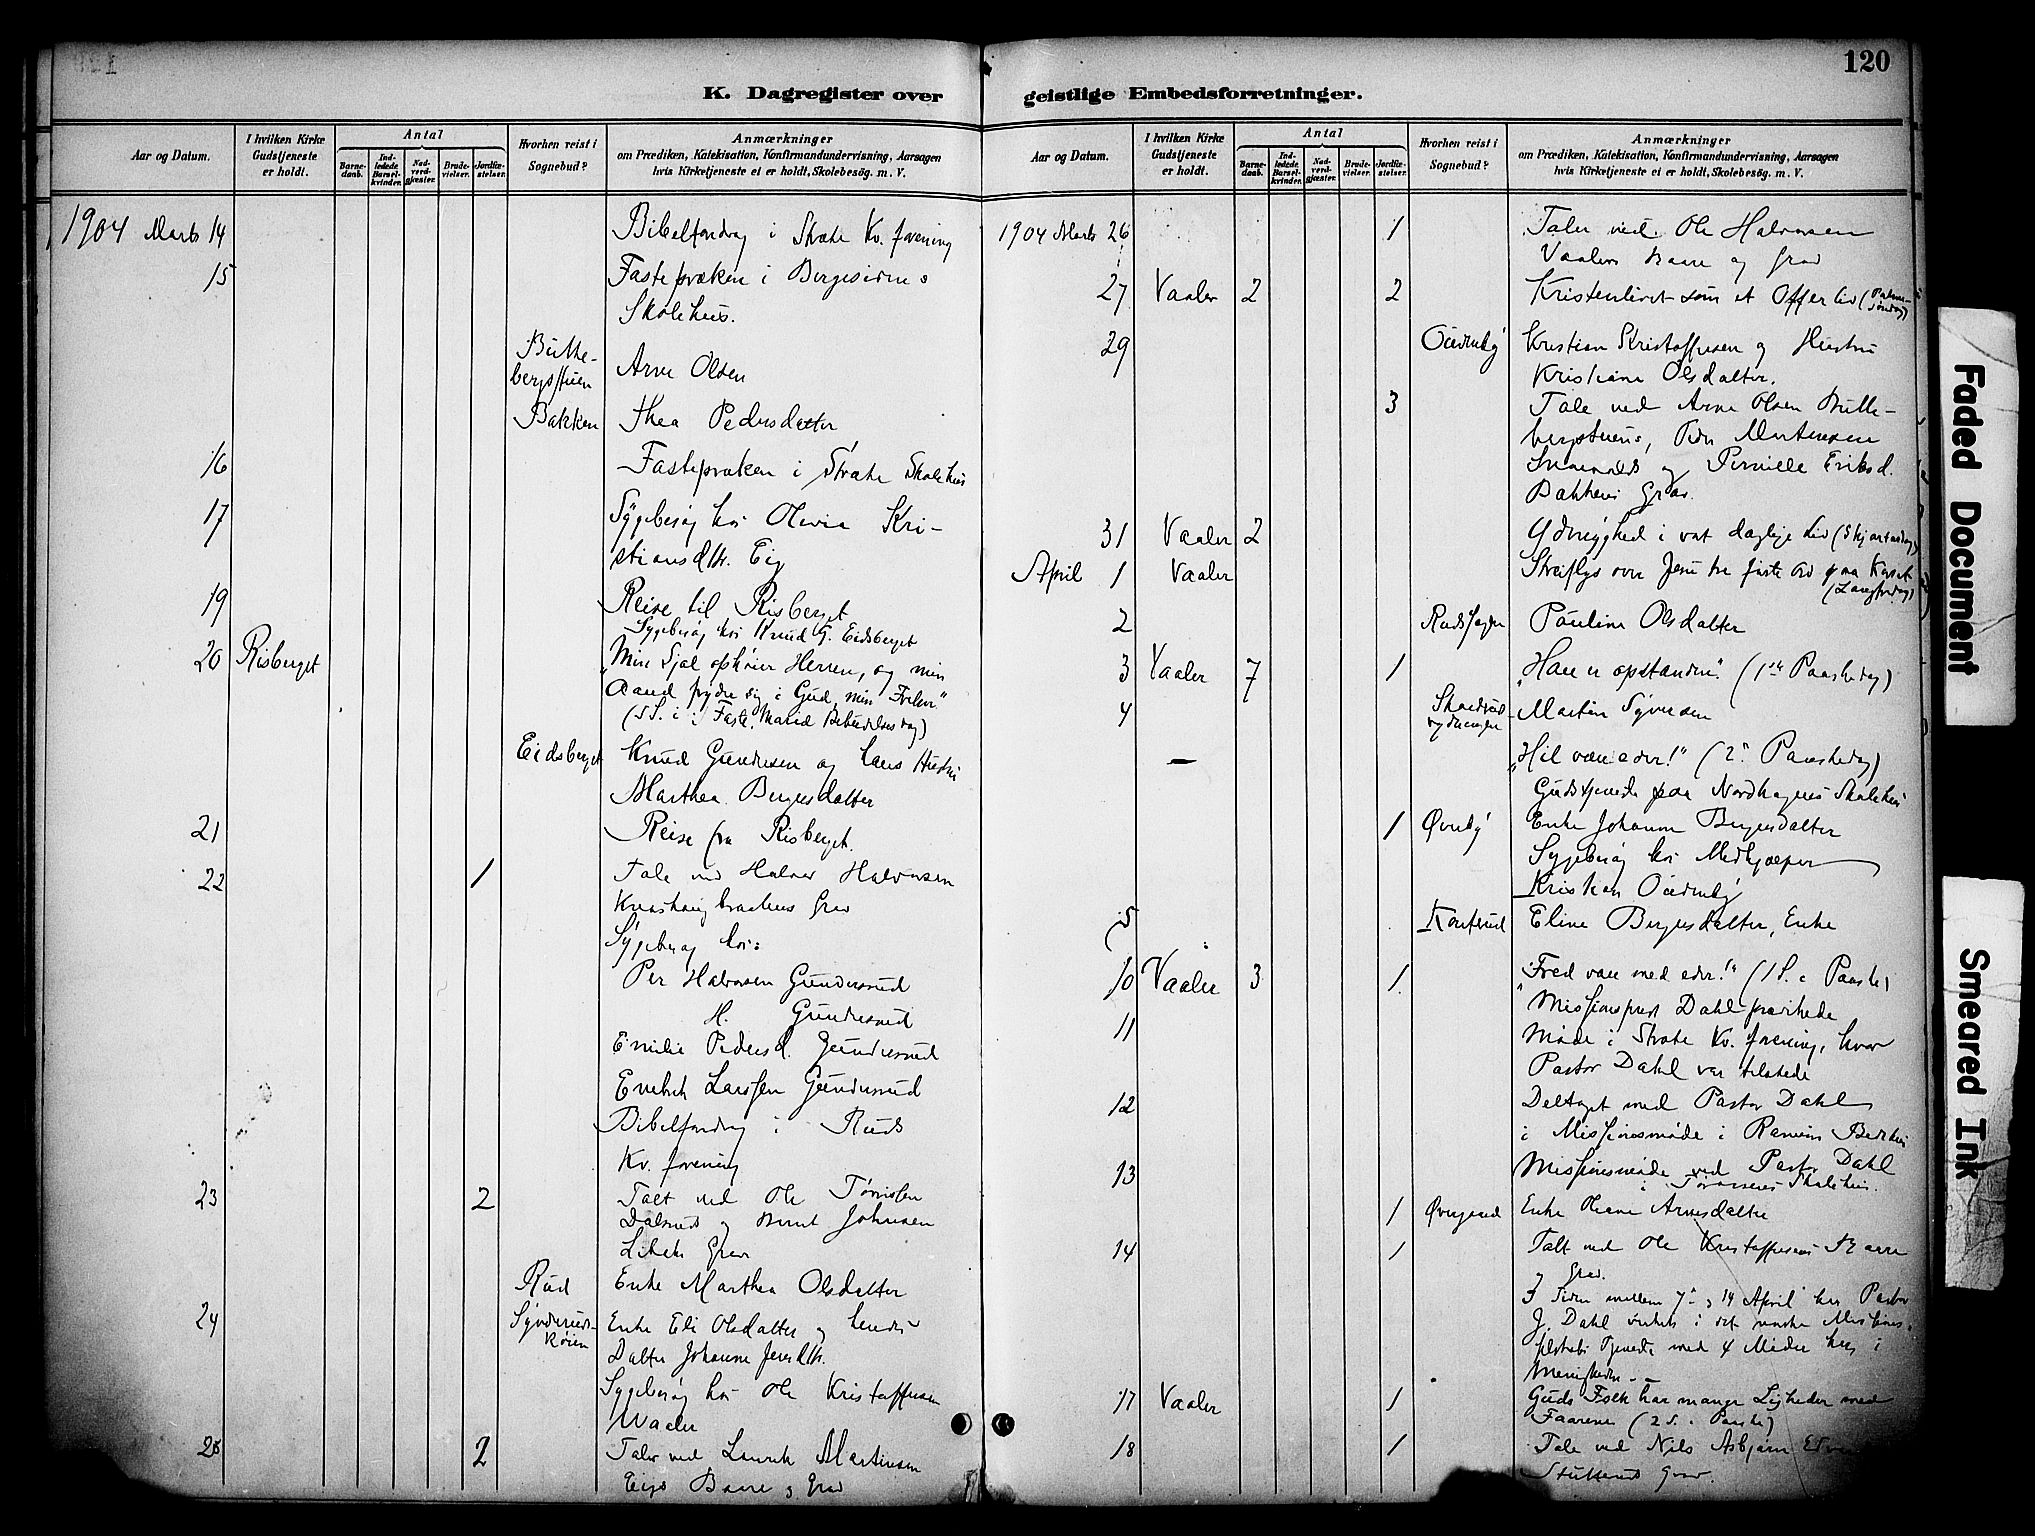 120
K. Dagregister over
geistlige Embedsforretninger.
Aar og Datum.
I hvilken Kirke Gudstjeneste er holdt.
Antal
Barne-daab.
Ind-ledede Barsel-kvinder.
Nad-verd-gjæster.
Brude-vielser.
Jordfæ-stelser.
Hvorhen reist i Sognebud?
Anmærkninger
om Prædiken, Katekisation, Konfirmandundervisning, Aarsagen
hvis Kirketjeneste ei er holdt, Skolebesøg. m. V.
1904 Marts 14 Bibelforedrag i Stræte Kv. forening
15 Fastepræken i Bergesidens
Skolehus.
Arne Olsen
Bakken Thea Pedersdatter
16 Fastepræken i Stræte Skolehus
17 Sygebesøg hos Olevia Kri-
stiansdtr. Eig
19 Reise til Risberget
Sygebesøg hos Knud G. Eidsberget
20 Risberget "Min Sjæl ophøier Herren, og min
Aand fryder sig i Gud, min Frelser"
(5 S. i Faste. Mariæ Bebudelses dag)
Eidsberget Knud Gundersen og hans Hustru
Marthea Bergersdatter
21 Reise fra Risberget.
22 1 Tale ved Halvor Halvorsen
Grav
Sygebesøg hos:
Per Halvorsen Gundersrud
H. Gundersrud
Emilie Pedersd. Gundersrud
Larssen Gundersrud
Bibelforedrag i Ruds
Kv. forening
23 2 Talt ved Ole
og Bernt Johnsen
Grav
Rud Enke Marthea Olsdatter
24 Enke Eli Olsdatter og hendes
Datter Johanne
Sygebesøg hos Ole Kristoffersen
Vaaler
2 Taler ved Martinsen
Eigs Baare og Grav
Aar og Datum.
I hvilken Kirke Gudstjeneste er holdt.
Antal
Barne-daab.
Ind-ledede Barsel-kvinder.
Nad-verd-gjæster.
Brude-vielser.
Jordfæ-stelser.
Hvorhen reist i Sognebud?
Anmærkninger
om Prædiken, Katekisation, Konfirmandundervisning, Aarsagen
hvis Kirketjeneste ei er holdt, Skolebesøg. m. V.
1904 Marts 26 1 Taler ved Ole Halvorsen
Vaalers Baare og Grav
27 Vaaler 2 2 Kristenlivet som et Offerliv (Palme-
søndag)
29 Kristian Kristoffersen og Hustru
Kristiane Olsdatter.
3 Tale ved Arne Olsen
Martinsen
og Pernille Eriksd.
Bakkens Grav.
31 Vaaler 2 Ydmyghed i vort daglige Liv (Skjærtorsdag)
April 1 Vaaler Streiflys over Jesu tre første Ord paa Korset
(Langfredag)
2 Pauline Olsdatter
3 Vaaler 7 1 "Han er opstanden." (1ste Paaskedag)
4 Martin Syversen
— "Hil være eder!" (2. Paaskedag)
Gudstjeneste paa Nordhagens Skolehus
1 Øvreby Enke Johanne Bergersdatter
Sygebesøg hos Medhjælper
Kristian
5 Eline Bergersdatter, Enke
10 Vaaler 3 1 "Fred være med eder!" (1 S. e Paaske)
Missionsprest Dahl prædikede
11 Møde i Stræte Kv. forening, hvor
Pastor Dahl var tilstede
12 Deltaget med Pastor Dahl
i Missionsmøde i Bedehus
13 Missionsmøde ved Pastor Dahl
i Skolehus.
1 Enke Olsdatter Arnesdatter
14 1 Talt ved Ole Kristoffersens Baare
og Grav.
I Tiden mellem 7de og 14 April har Pastor
J. Dahl virket i det norske Missions-
selskabs Tjeneste med 4 Møder her i
Menigheden.
17 Vaaler 1 Guds Folk har mange Ligheder med
Faarene (2 S. e Paaske)
18 1 Tale ved Nils Asbjørn
Grav.
Faded Document
Smeared Ink